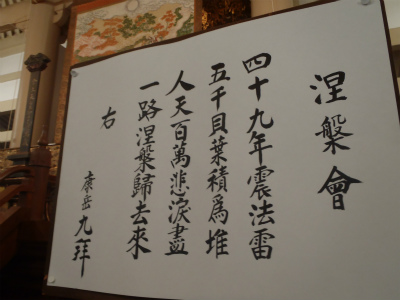 涅槃會
四十九年震法雷
五千貝葉積為堆
人天百萬悲淚盡
一路涅槃歸去來
右
康岳九拜